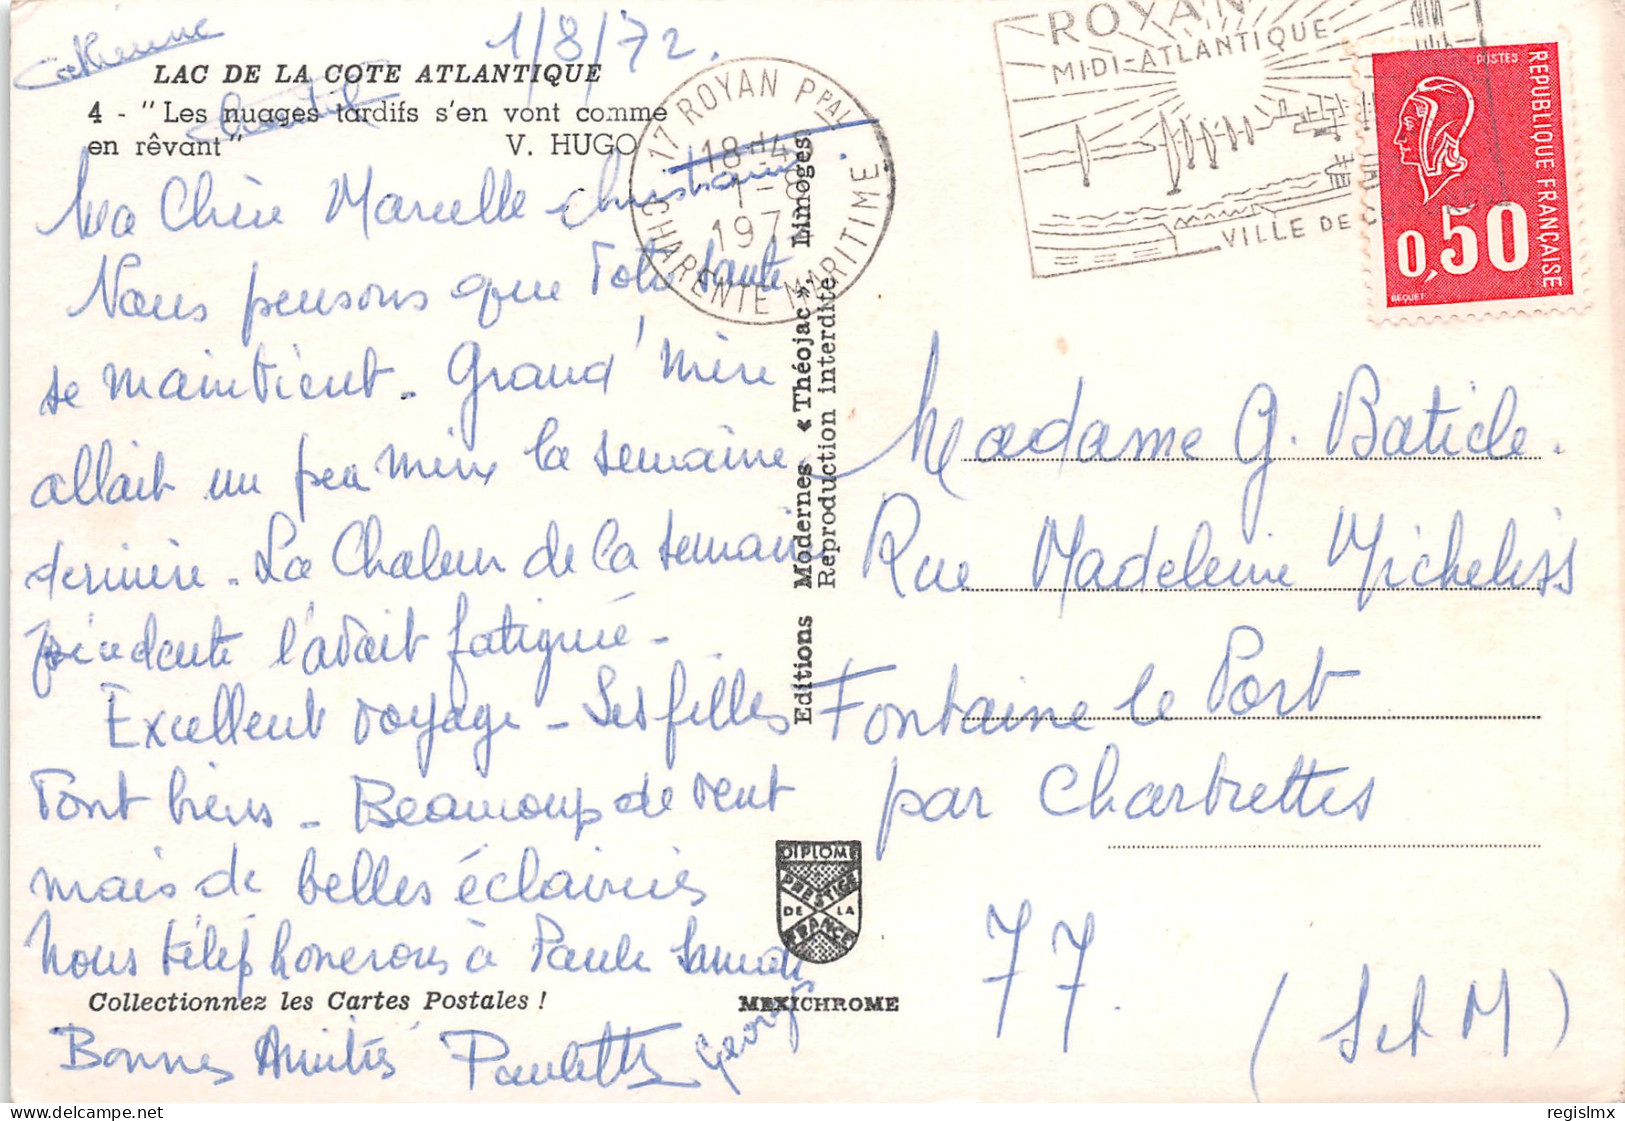 Catherine
1/8/72.
LAC DE LA COTE ATLANTIQUE
4 - "Les nuages tardifs s'en vont comme
en rêvant" V. HUGO
Ma Chère Marcelle Christiane
Nous pensons que votre santé
se maintient. Grand'mère
allait un peu mieux la semaine
dernière. La Chaleur de la semaine
précédente l'avait fatiguée -
Excellent voyage - Les filles
vont bien - Beaucoup de vent
mais de belles éclaircies
Nous téléphonerons à Paule Samedi
Collectionnez les Cartes Postales !
Bonnes Amitiés Paulette Georges
17 ROYAN PPAL
18H45
1-8
1972
CHARENTE MARITIME
Editions Modernes « Théojac », Limoges
Reproduction interdite
DIPLOME
PRESTIGE
DE LA
FRANCE
MEXICHROME
ROYAN
MIDI-ATLANTIQUE
VILLE DE
POSTES
REPUBLIQUE FRANÇAISE
0,50
BEQUET
Madame G. Baticle.
Rue Madeleine Micheliss
Fontaine le Port
par Chartrettes
77.
(S et M)
regislmx